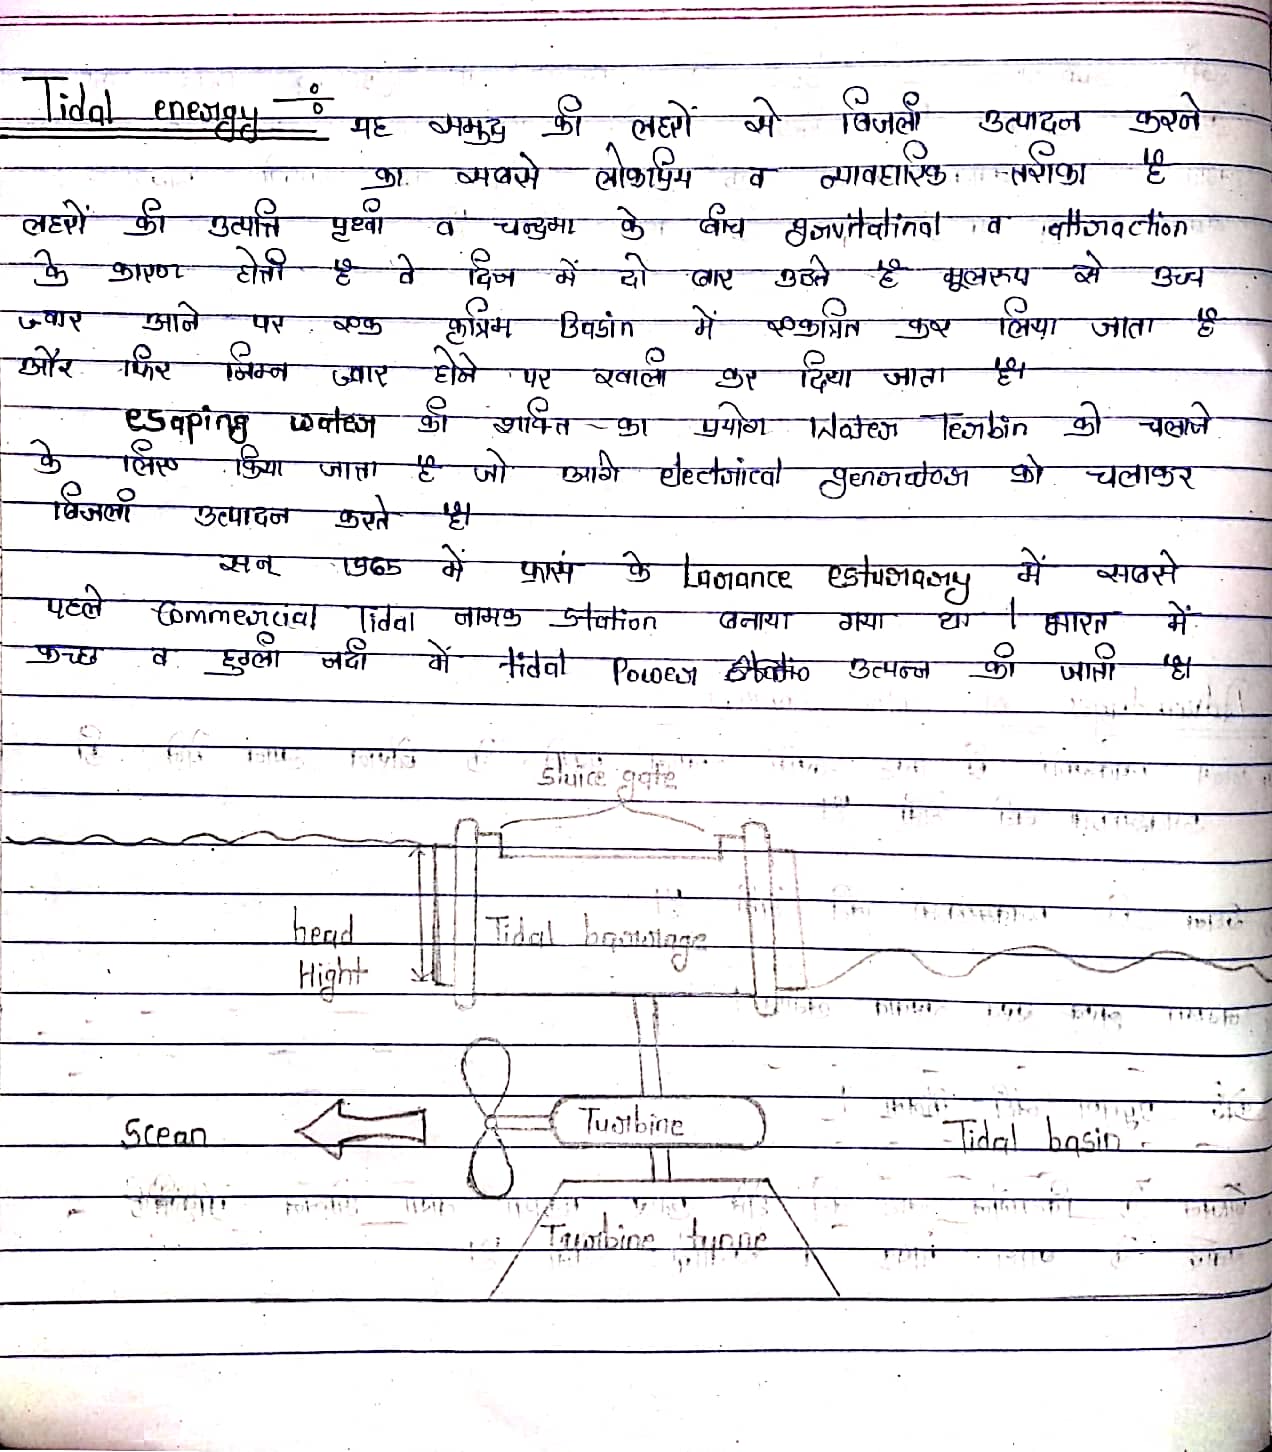 Tidal energy ÷ यह समुद्र की लहरों से बिजली उत्पादन करने
का सबसे लोकप्रिय व व्यावहारिक तरीका है
लहरों की उत्पत्ति पृथ्वी व चन्द्रमा के बीच gravitatinal व attraction
के कारण होती है वे दिन में दो बार उठते है मूलरूप से उच्च
ज्वार आने पर एक कृत्रिम Basin में एकत्रित कर लिया जाता है
और फिर निम्न ज्वार होने पर खाली कर दिया जाता है।
esaping water की शक्ति का प्रयोग Water Terbin को चलाने
के लिए किया जाता है जो आगे electrical generator को चलाकर
बिजली उत्पादन करते है।
सन् 1965 में फ्रांस के Larance esturary में सबसे
पहले Commercial Tidal नामक Station बनाया गया था । भारत में
कच्छ व हुगली नदी में tidal Power Statio उत्पन्न की जाती है।
sluice gate
head Tidal barrrage
Hight
Turbine
Scean Tidal basin
Turbine tynne